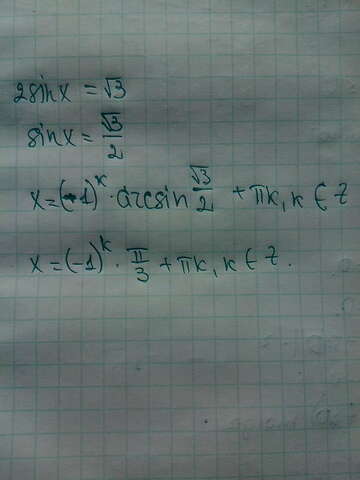 2sinx = √3
sinx = √3/2
x = (-1)^k · arcsin √3/2 + πk, k ∈ Z
x = (-1)^k · π/3 + πk, k ∈ Z.